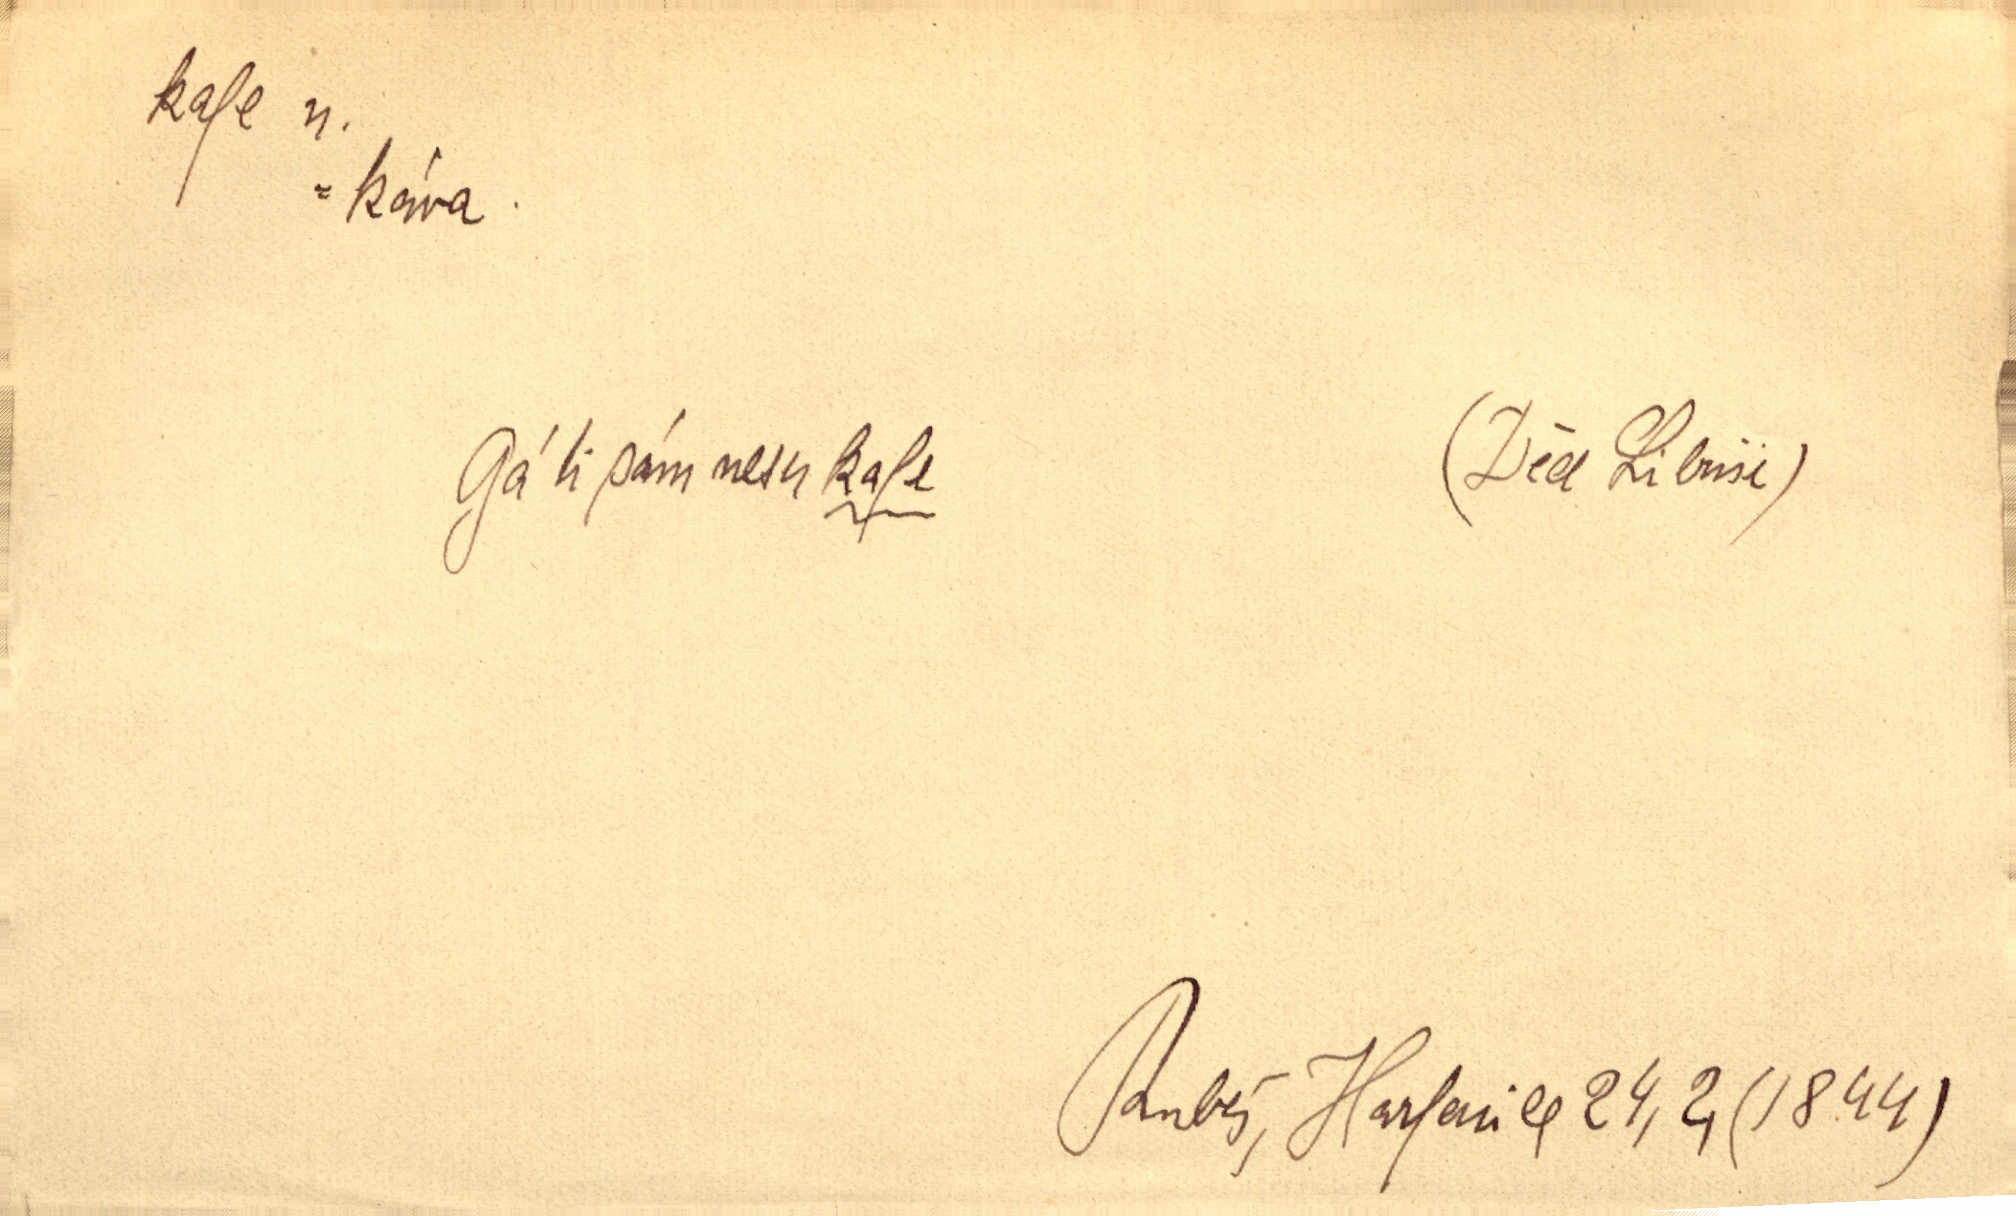 kafe n.
= káva.
Gá ti sám nesu kafe (Děd Libuši)
Rubeš, Harfenice 24, 2, (1844)